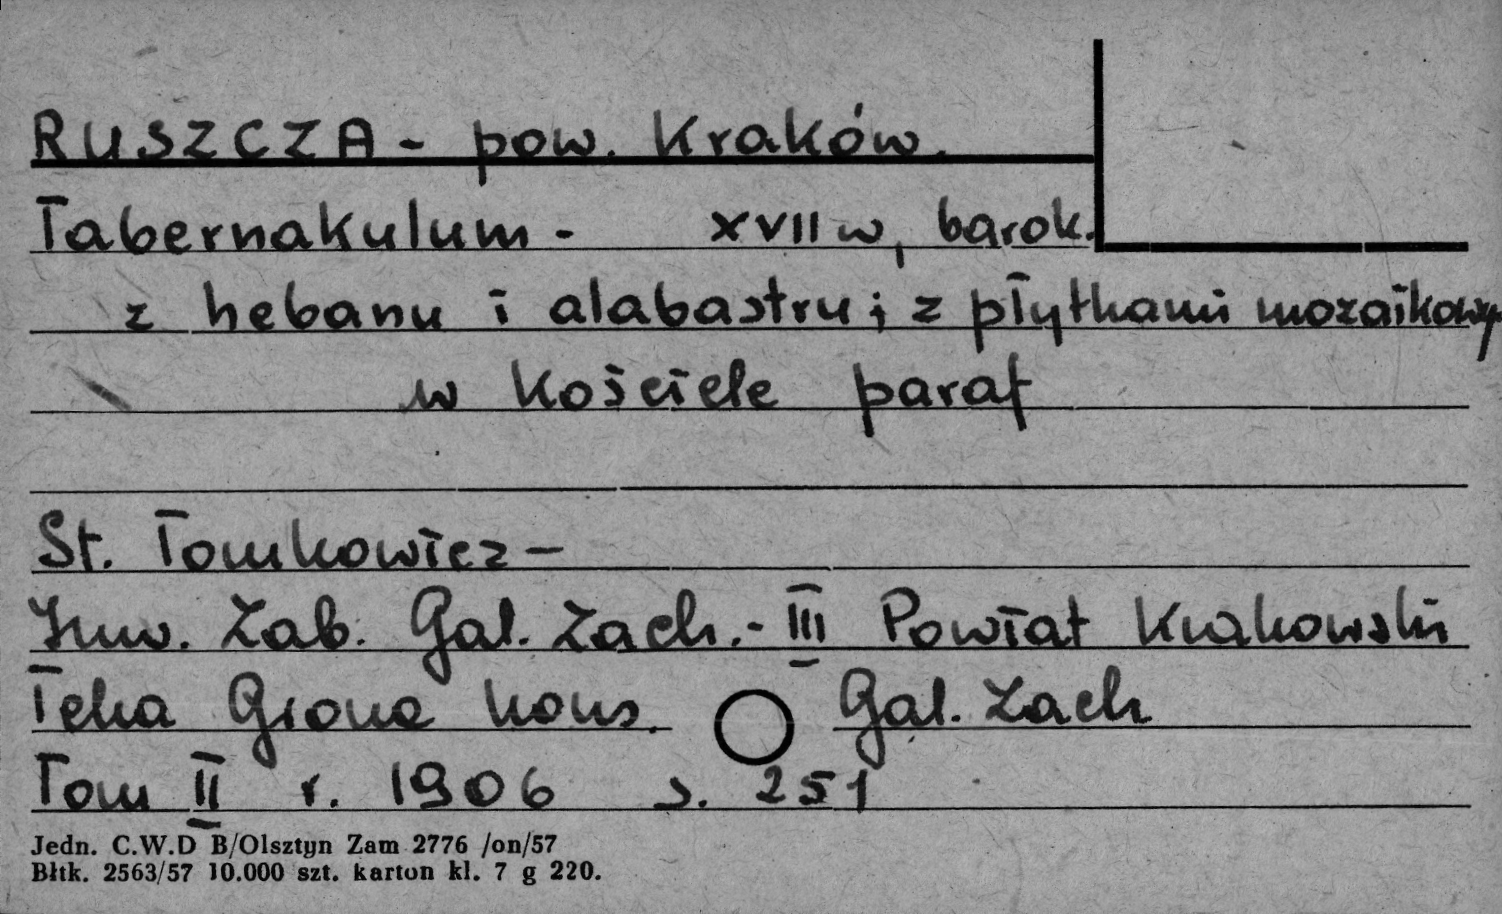 RUSZCZA - pow. Kraków.
Tabernakulum - XVII w, barok.
z hebanu i alabastru; z płytkami mozaikowy
w kościele paraf
St. Tomkowicz -
Inw. Zab. Gal. Zach. - III Powiat Krakowski
Teka Grona kons. Gal. Zach
Tom II r. 1906 s. 251
Jedn. C.W.D B/Olsztyn Zam 2776 /on/57
Błtk. 2563/57 10.000 szt. karton kl. 7 g 220.